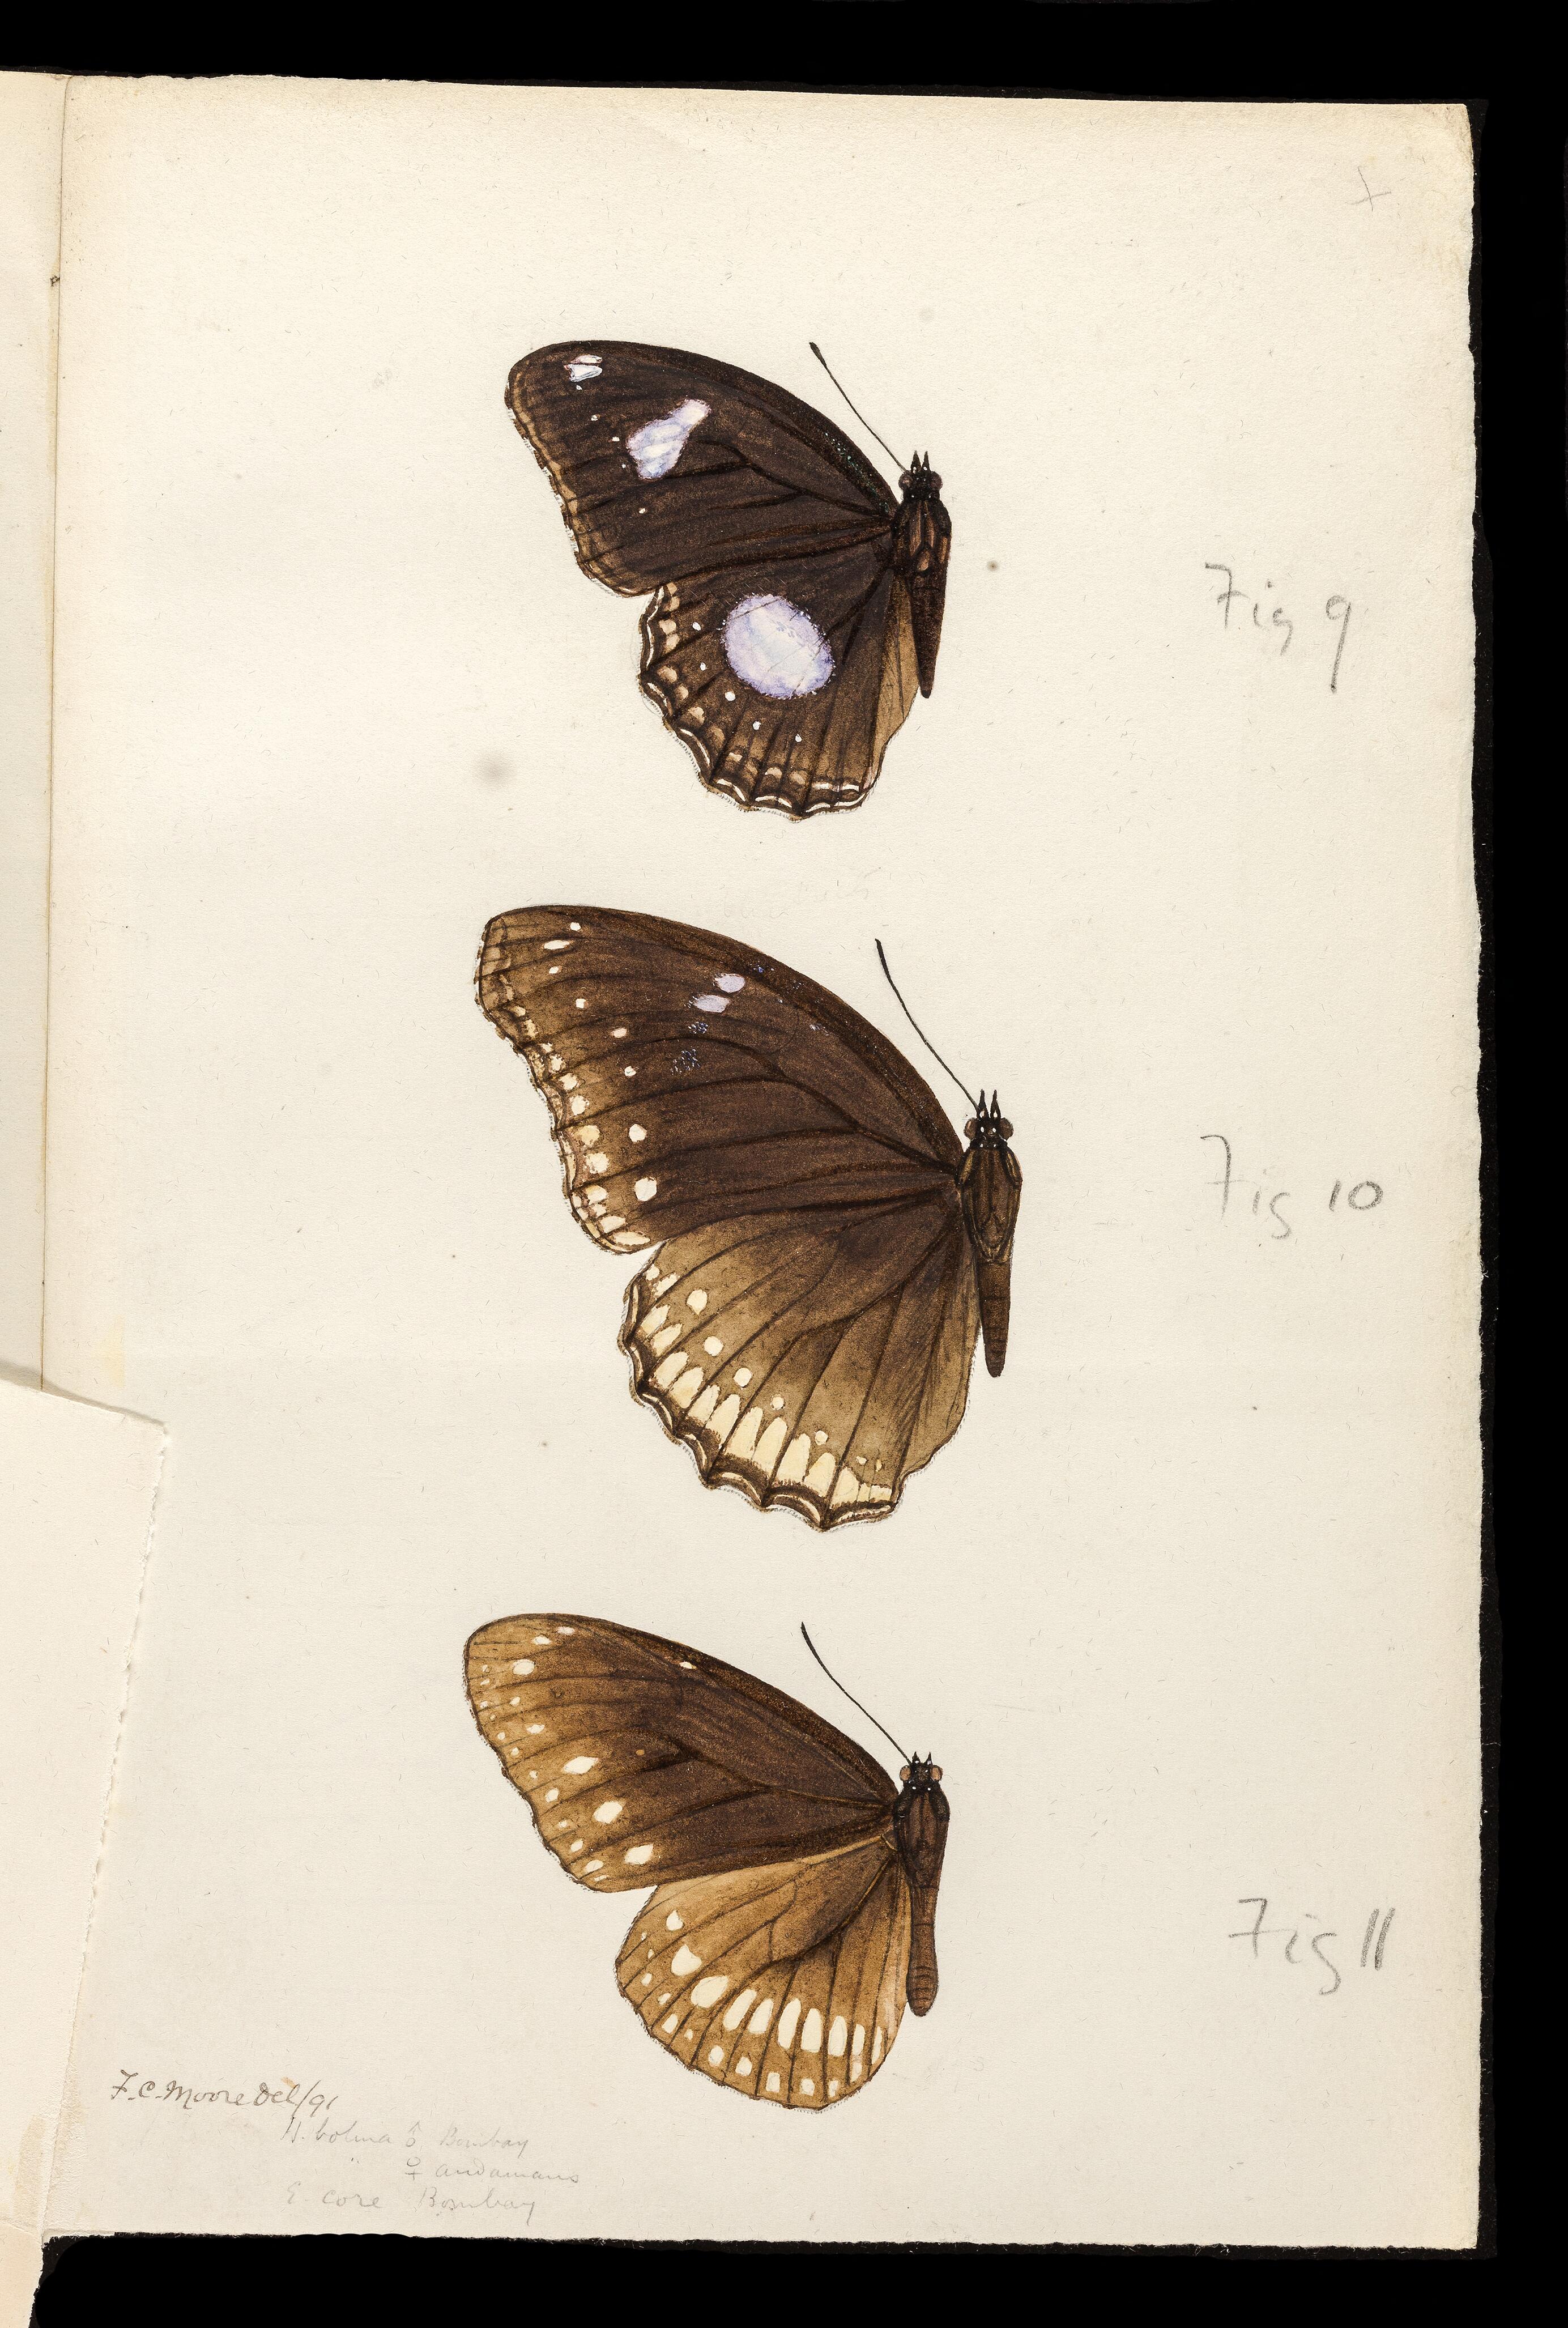 Fig 9
Fig 10
Fig 11
F.C. Moore del/91
H. bolina ♂ Bombay
♀ andamans
E. core Bombay